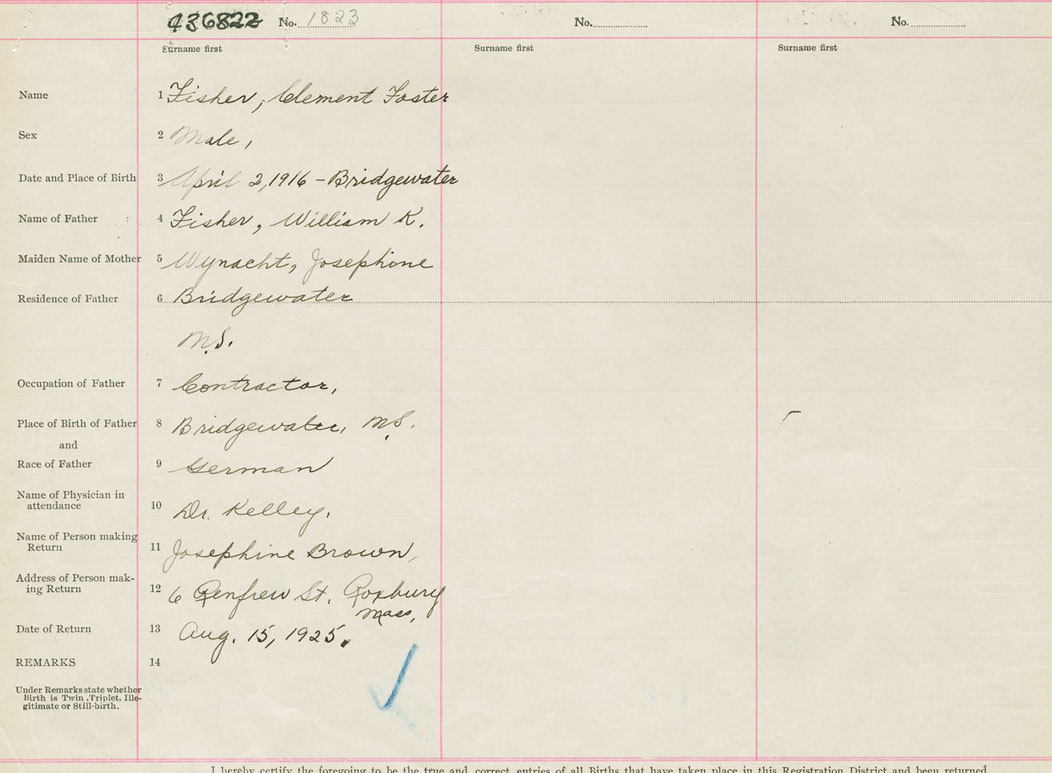 436822 No. 1823 No. No.
Surname first Surname first Surname first
Name 1 Fisher, Clement Foster
Sex 2 Male,
Date and Place of Birth 3 April 2, 1916 - Bridgewater
Name of Father : 4 Fisher, William K.
Maiden Name of Mother 5 Wynacht, Josephine
Residence of Father 6 Bridgewater
N.S.
Occupation of Father 7 Contractor,
Place of Birth of Father 8 Bridgewater, N.S.
and
Race of Father 9 German
Name of Physician in
attendance 10 Dr. Kelley.
Name of Person making
Return 11 Josephine Brown,
Address of Person mak-
ing Return 12 6 Renfrew St. Roxbury
Mass.
Date of Return 13 Aug. 15, 1925.
REMARKS 14
Under Remarks state whether
Birth is Twin, Triplet, Ille-
gitimate or Still-birth.
I hereby certify the foregoing to be the true and correct entries of all Births that have taken place in this Registration District and been returned